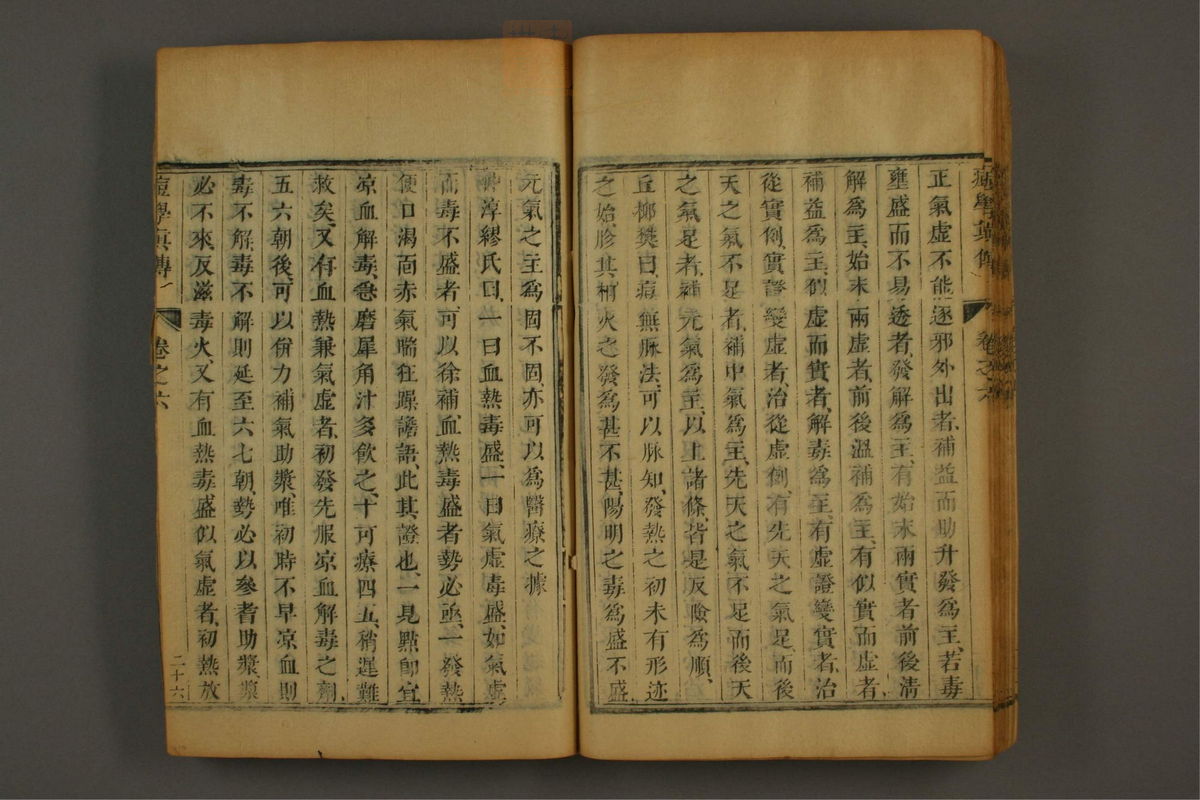 痘學眞傳 卷之六
正氣虛不能逐邪外出者、補益而助升發爲主、若毒
壅盛而不易透者、發解爲主、有始末兩實者、前後淸
解爲主、始末兩虛者、前後溫補爲主、有似實而虛者、
補益爲主、似虛而實者、解毒爲主、有虛證變實者、治
從實例、實證變虛者、治從虛例、有先天之氣足、而後
天之氣不足者、補中氣爲主、先天之氣不足而後天
之氣足者、補元氣爲主、以上諸條、皆是反險爲順、
丘櫛樊曰、痘無脉法、可以脉知、發熱之初、未有形迹
之始、胗其相火之發爲甚不甚、陽明之毒爲盛不盛
元氣之主爲固不固、亦可以爲醫療之據
淳繆氏曰、一曰血熱毒盛、一曰氣虛毒盛、如氣虛
而毒不盛者、可以徐補、血熱毒盛者、勢必亟、一發熱
便口渴面赤氣喘狂躁譫語、此其證也、一見點卽宜
凉血解毒、急磨犀角汁多飮之、十可療四五、稍遲難
救矣、又有血熱兼氣虛者、初發先服凉血解毒之劑、
五六朝後、可以倂力補氣助漿、唯初時不早凉血則
毒不解、毒不解則延至六七朝、勢必以參耆助漿、漿
必不來、反滋毒火、又有血熱毒盛似氣虛者、初熱放
痘學眞傳 卷之六 二十六